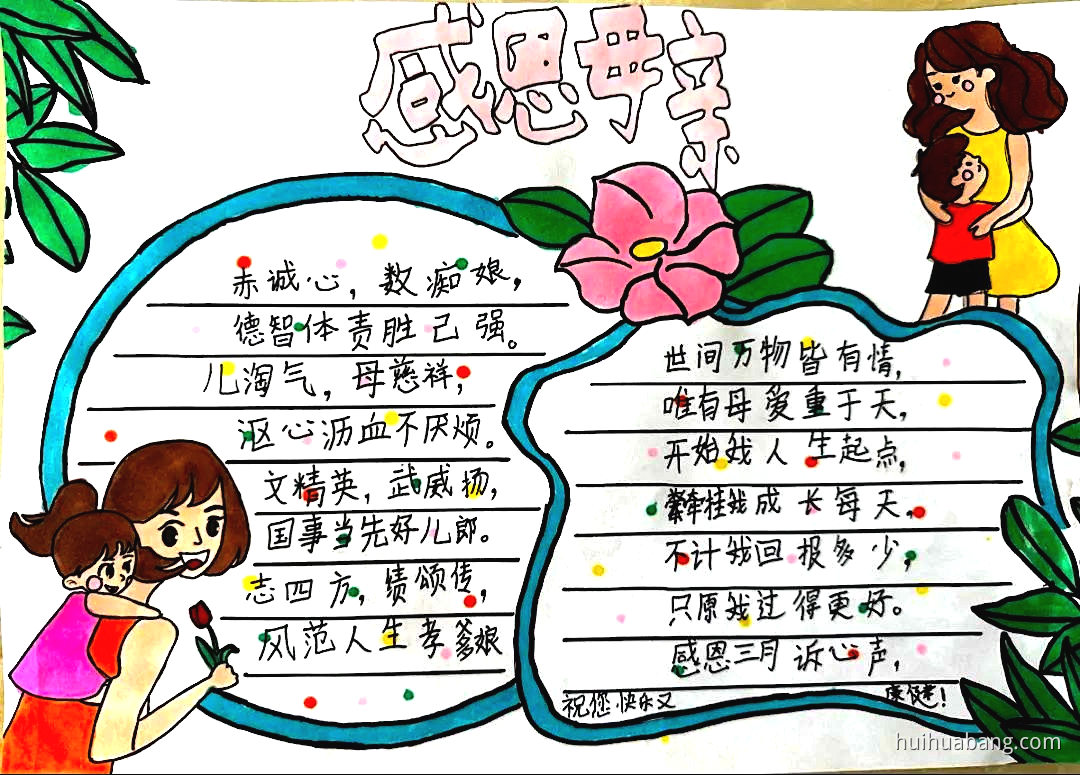 感恩母亲
赤诚心，数痴娘，
德智体责胜己强。
儿淘气，母慈祥，
沤心沥血不厌烦。
文精英，武威扬，
国事当先好儿郎。
志四方，绩颂传，
风范人生孝爹娘
世间万物皆有情，
唯有母爱重于天，
开始我人生起点，
紧牵挂我成长每天，
不计我回报多少，
只愿我过得更好。
感恩三月诉心声，
祝您快乐又康健！
huihuabang.com